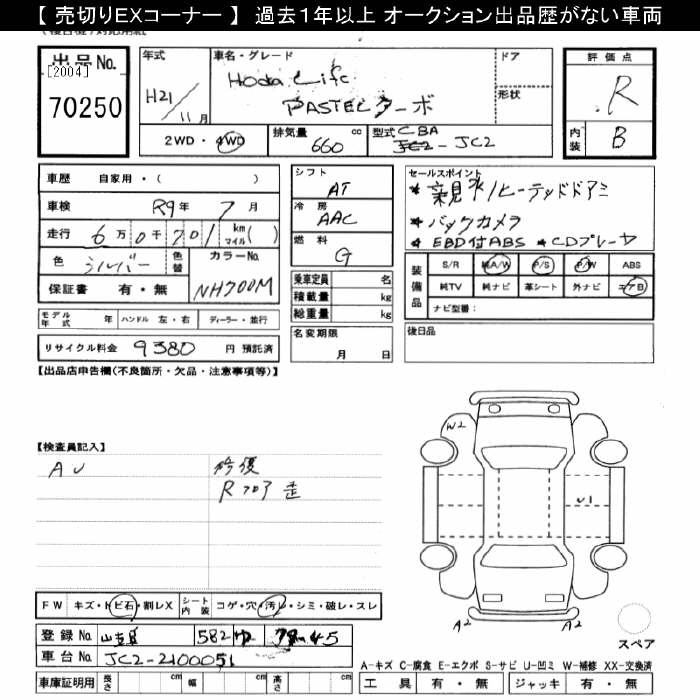 【 売切りEXコーナー 】 過去1年以上 オークション出品歴がない車両
出品No.
[2004]
70250
年式
H21/11月
車名・グレード
Hoda Life
PASTELターボ
ドア
形状
2WD・4WD
排気量 660 cc
型式 CBA
JC2 - JC2
評価点
R
内装 B
車歴 自家用・( )
車検 R9年 7月
走行 6万0千701 km マイル( )
色 シルバー 色替 カラーNo. NH700M
保証書 有・無
モデル年式 年 ハンドル 左・右 ディーラー・並行
リサイクル料金 9380 円 預託済
シフト AT
冷房 AAC
燃料 G
乗車定員 名
積載量 kg
総重量 kg
名変期限
月 日
セールスポイント
* バックカメラ
* EBD付ABS * CDプレーヤ
装備品
S/R 純A/W P/S P/W ABS
純TV 純ナビ 革シート 外ナビ エアB
ナビ型番:
後日品
【出品店申告欄(不良箇所・欠品・注意事項等)】
【検査員記入】
AU
修復
Rフロア 歪
W2
U1
A2
A2
スペア
FW キズ・トビ石・割レX シート内装 コゲ・穴・汚レ・シミ・破レ・スレ
登録No. 582 ゆ
車台No. JC2-2100051
車庫証明用 長さ cm 幅 cm 高さ cm
A-キズ C-腐食 E-エクボ S-サビ U-凹ミ W-補修 XX-交換済
工具 有・無 ジャッキ 有・無